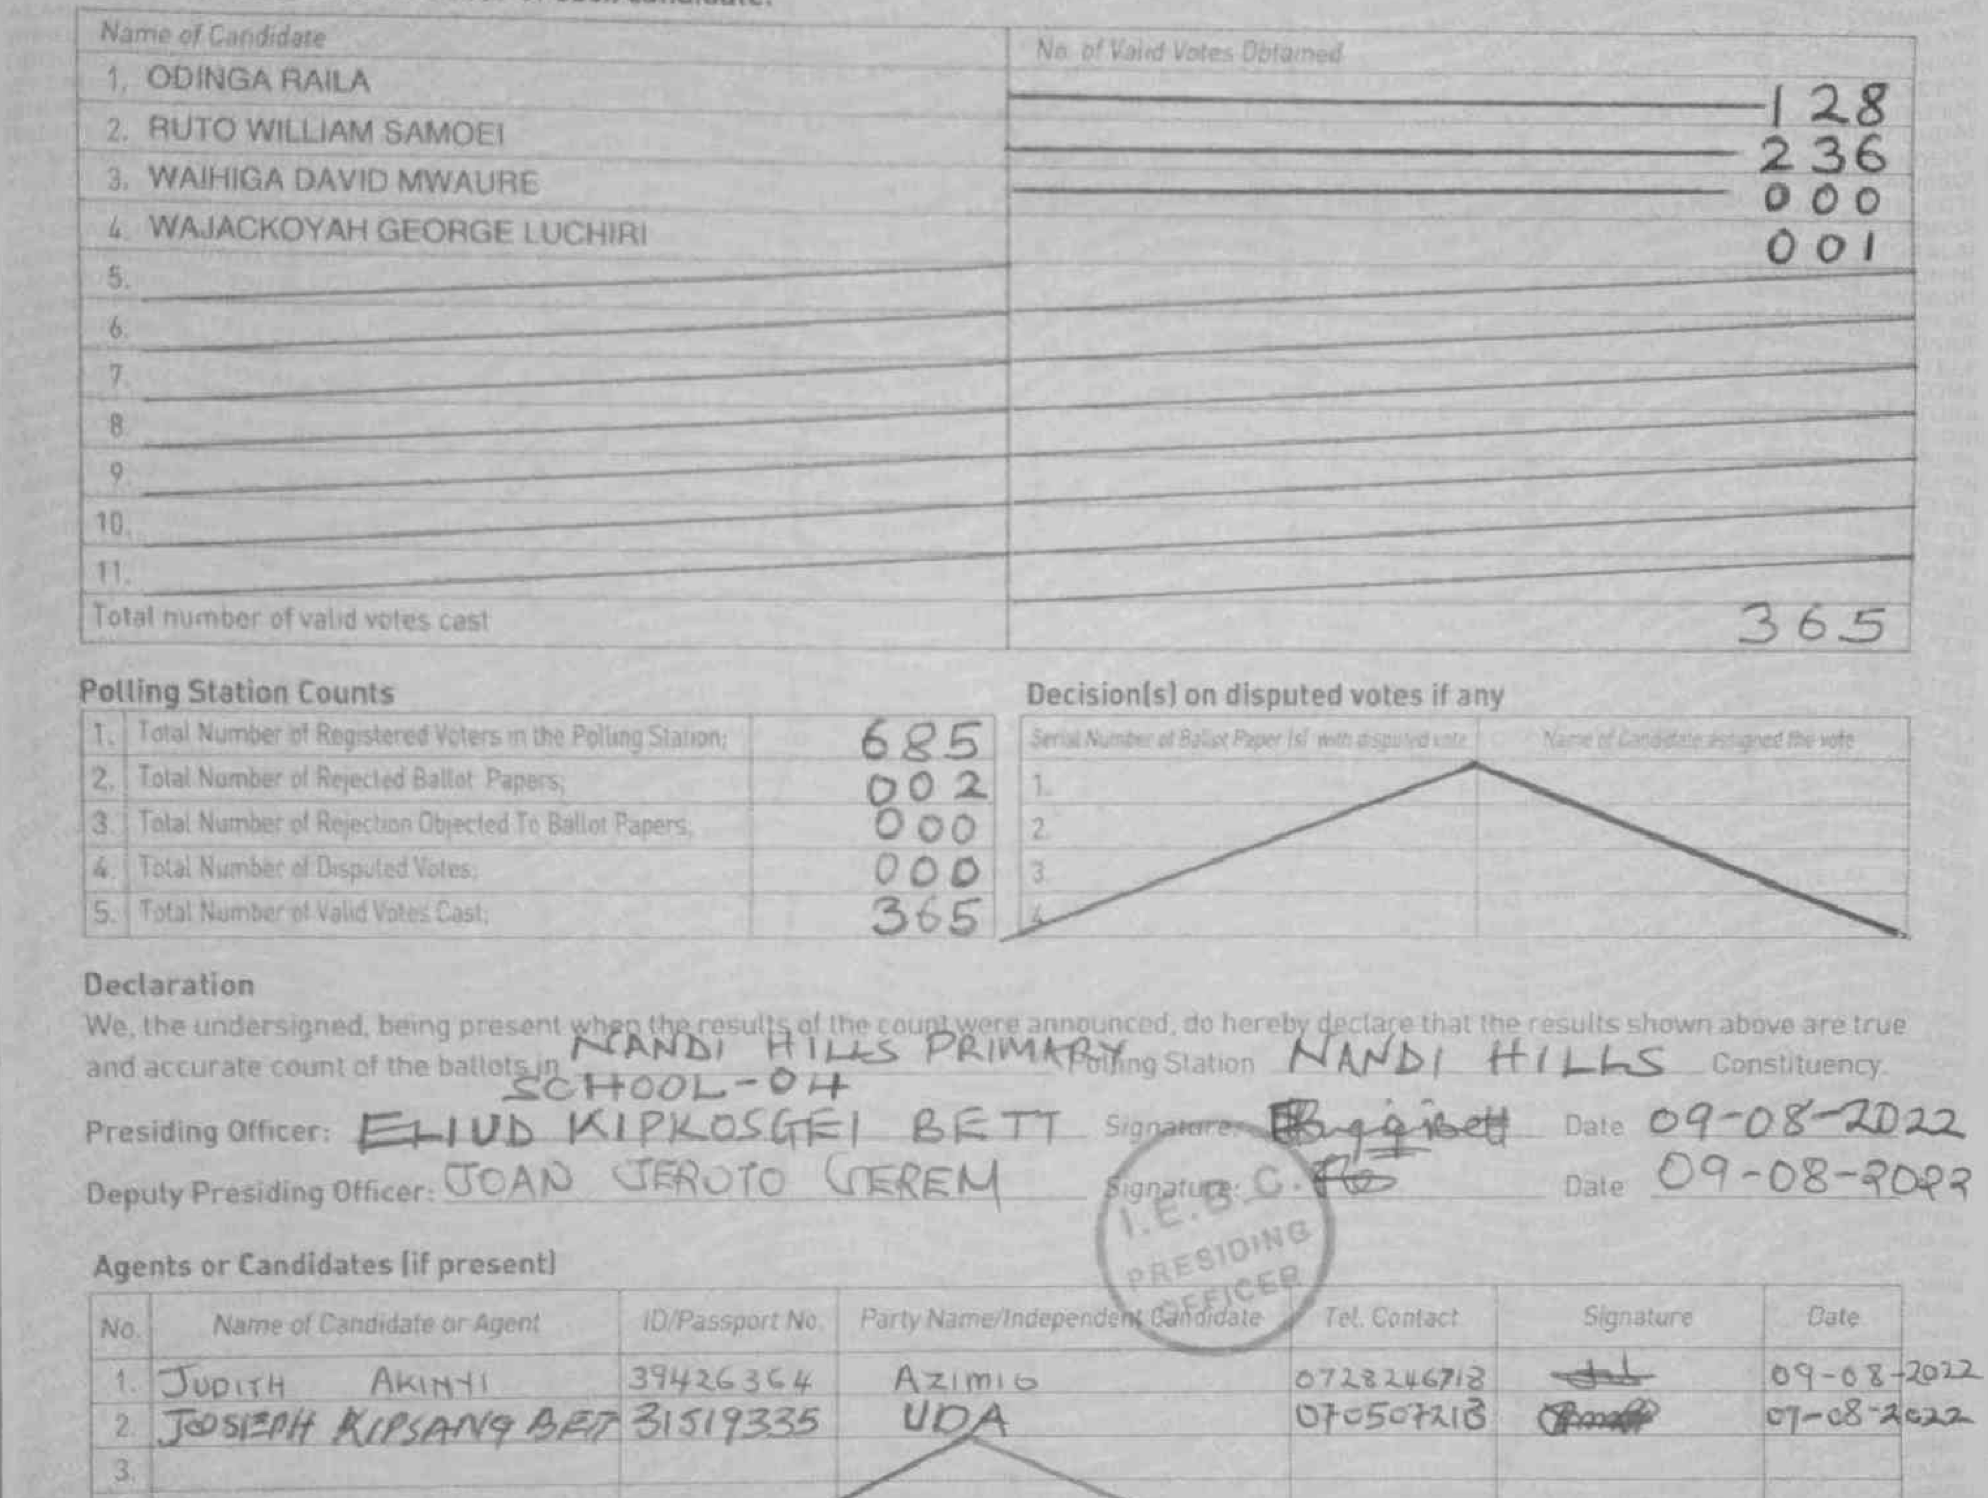 Name of Candidate No. of Valid Votes Obtained
1. ODINGA RAILA 128
2. RUTO WILLIAM SAMOEI 236
3. WAIHIGA DAVID MWAURE 000
4. WAJACKOYAH GEORGE LUCHIRI 001
5.
6.
7.
8.
9.
10.
11.
Total number of valid votes cast 365
Polling Station Counts
1. Total Number of Registered Voters in the Polling Station; 685
2. Total Number of Rejected Ballot Papers; 002
3. Total Number of Rejection Objected To Ballot Papers; 000
4. Total Number of Disputed Votes; 000
5. Total Number of Valid Votes Cast; 365
Decision(s) on disputed votes if any
Serial Number of Ballot Paper (s) with disputed vote Name of Candidate assigned the vote
1.
2.
3.
4.
Declaration
We, the undersigned, being present when the results of the count were announced, do hereby declare that the results shown above are true
and accurate count of the ballots in NANDI HILLS PRIMARY Polling Station NANDI HILLS Constituency.
SCHOOL-04
Presiding Officer: ELIUD KIPKOSGEI BETT Signature: Date 09-08-2022
Deputy Presiding Officer: JOAN JEROTO JEREM Signature: Date 09-08-2022
I.E.B.C.
PRESIDING
OFFICER
Agents or Candidates (if present)
No. Name of Candidate or Agent ID/Passport No. Party Name/Independent Candidate Tel. Contact Signature Date
1. JUDITH AKINYI 39426364 AZIMIO 0728246718 09-08-2022
2. JOSIEPH KIPSANG BET 31519335 UDA 07-08-2022
3.